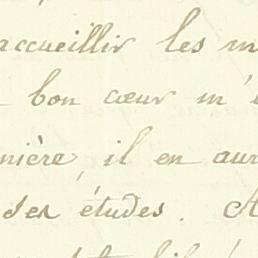 accueillir les m
bon cœur m'
nière, il en aur
des études. A